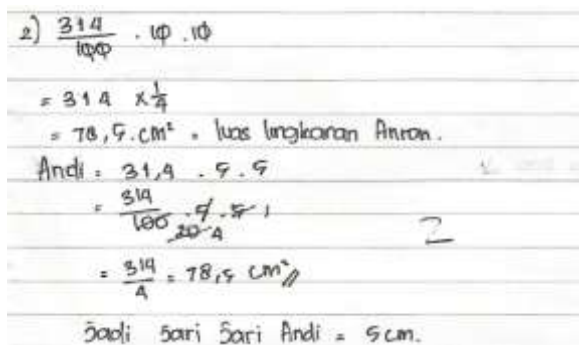 2) 314/100 . 10 . 10
= 314 x 1/4
= 78,5 cm² = luas lingkaran Anran.
Andi = 31,4 . 5 . 5
= 314/100 . 5 . 5 1
20 4
= 314/4 = 78,5 cm² //
2
Jadi Jari Jari Andi = 5 cm.